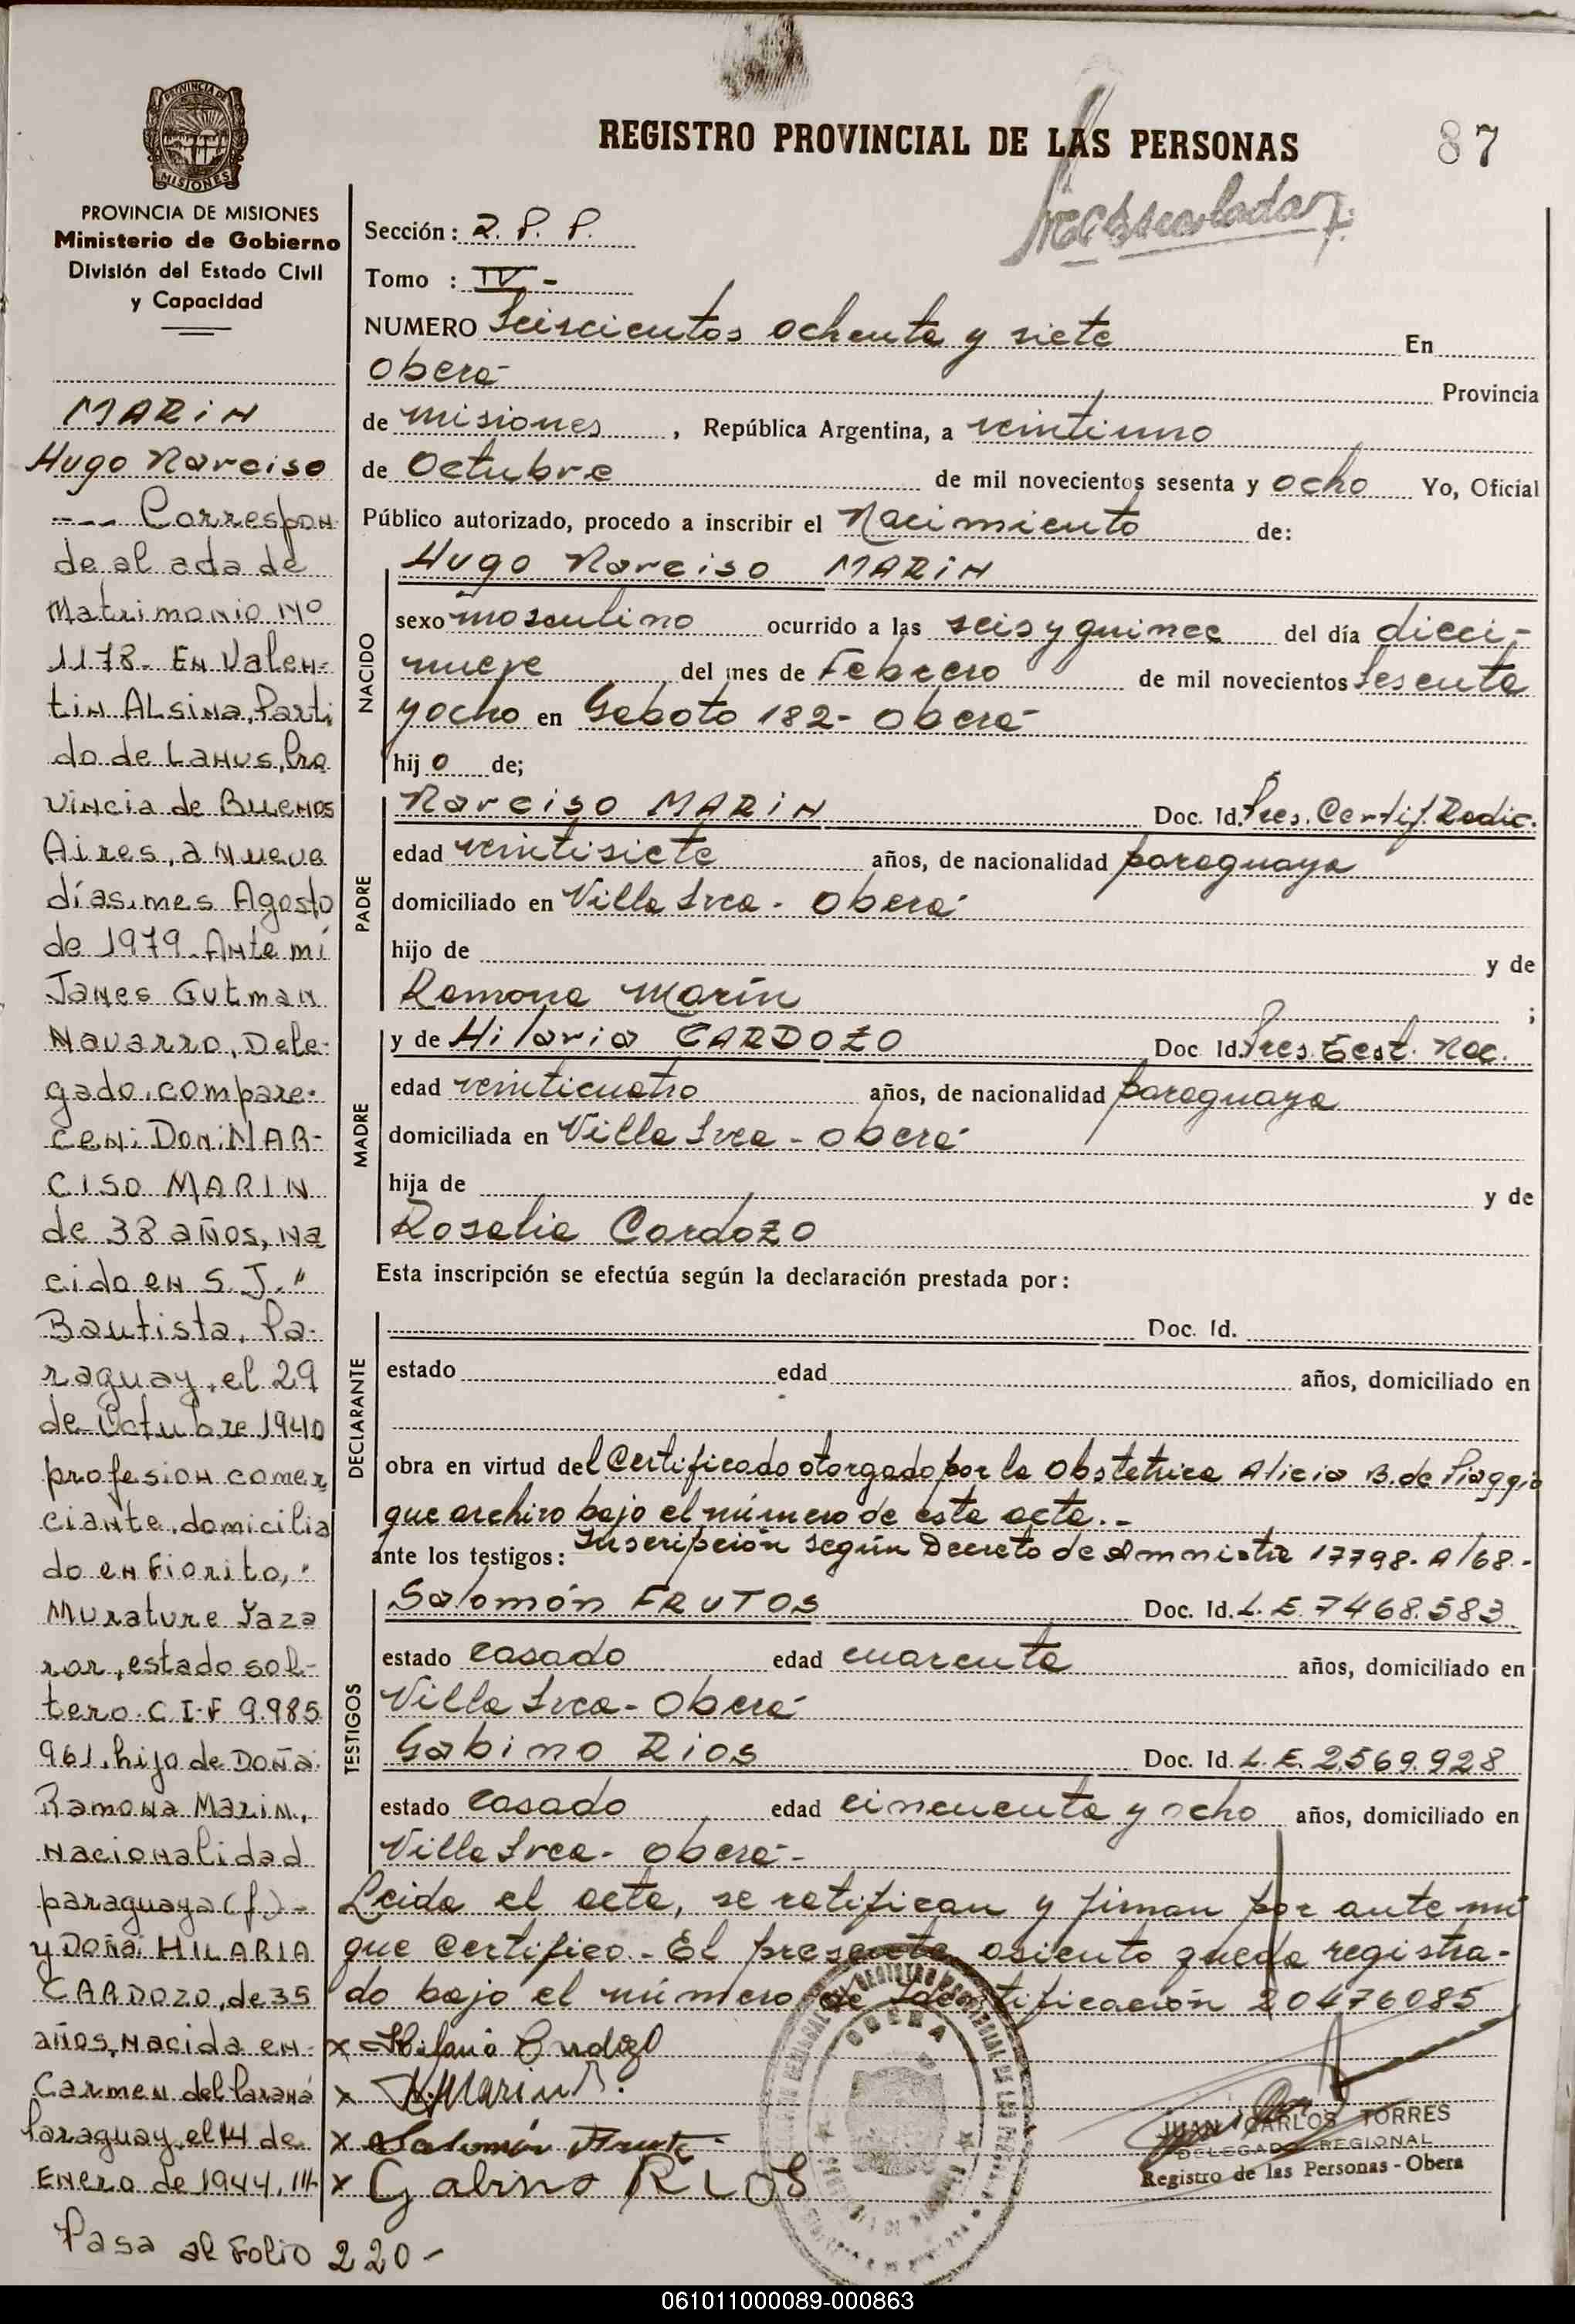 REGISTRO PROVINCIAL DE LAS PERSONAS
87
PROVINCIA DE
MISIONES
PROVINCIA DE MISIONES
Ministerio de Gobierno
División del Estado Civil
y Capacidad
MARIN
Hugo Narciso
---- Correspon
de al acta de
Matrimonio Nº
1178- En Valen-
tin Alsina, Parti
do de Lanus, Pro
vincia de Buenos
Aires, a nueve
días, mes Agosto
de 1979. Ante mí
Janes Gutman
Navarro, Dele-
gado, compare-
cen: Don: NAR-
CISO MARIN
de 38 años, na
cido en S. J. "
Bautista, Pa-
raguay, el 29
de Octubre 1940
profesion comer
ciante, domicilia
do en Fiorito, "
Murature Yaza
ror, estado sol-
tero. C.I.F 9.985
961, hijo de Doña
Ramona Marin,
nacionalidad
paraguaya (f.) -
y Doña HILARIA
CARDOZO, de 35
años, nacida en
Carmen del Paraná
Paraguay, el 14 de
Enero de 1944, ///-
Pasa al Folio 220-
Sección: 2. P. P.
Tomo : IV -
NUMERO Seiscientos ochenta y siete En
Oberá Provincia
de Misiones , República Argentina, a veintiuno
de Octubre de mil novecientos sesenta y ocho Yo, Oficial
Público autorizado, procedo a inscribir el Nacimiento de:
NACIDO
Hugo Narciso MARIN
sexo masculino ocurrido a las seis y quince del día dieci-
nueve del mes de Febrero de mil novecientos sesenta
y ocho en Gaboto 182- Oberá
hij o de;
PADRE
Narciso MARIN Doc. Id. Pres. Certif. Radic.
edad veintisiete años, de nacionalidad paraguaya
domiciliado en Villa Svea - Oberá
hijo de y de
Ramona Marín ;
MADRE
y de Hilaria CARDOZO Doc Id. Pres. Cert. Nac.
edad veinticuatro años, de nacionalidad paraguaya
domiciliada en Villa Svea - Oberá
hija de y de
Rosalia Cardozo
Esta inscripción se efectúa según la declaración prestada por:
DECLARANTE
Doc. Id.
estado edad años, domiciliado en
obra en virtud del Certificado otorgado por la Obstetrica Alicia B. de Piaggio
que archivo bajo el número de esta acta. -
ante los testigos: Inscripción según Decreto de Amnistia 17798- A/68.-
TESTIGOS
Salomón FRUTOS Doc. Id. L. E. 7468.583
estado casado edad cuarenta años, domiciliado en
Villa Svea - Oberá
Gabino RIOS Doc. Id. L. E. 2.569.928
estado casado edad cincuenta y ocho años, domiciliado en
Villa Svea - Oberá -
Leida el acta, se ratifican y firman por ante mi
que certifico.- El presente asiento queda registra-
do bajo el número de Identificación 20476085
x Hilaria Cardozo
x N. Marin
x Salomón Frutos
x Gabino RIOS
OBERA
JUAN CARLOS TORRES
DELEGADO REGIONAL
Registro de las Personas - Obera
061011000089-000863